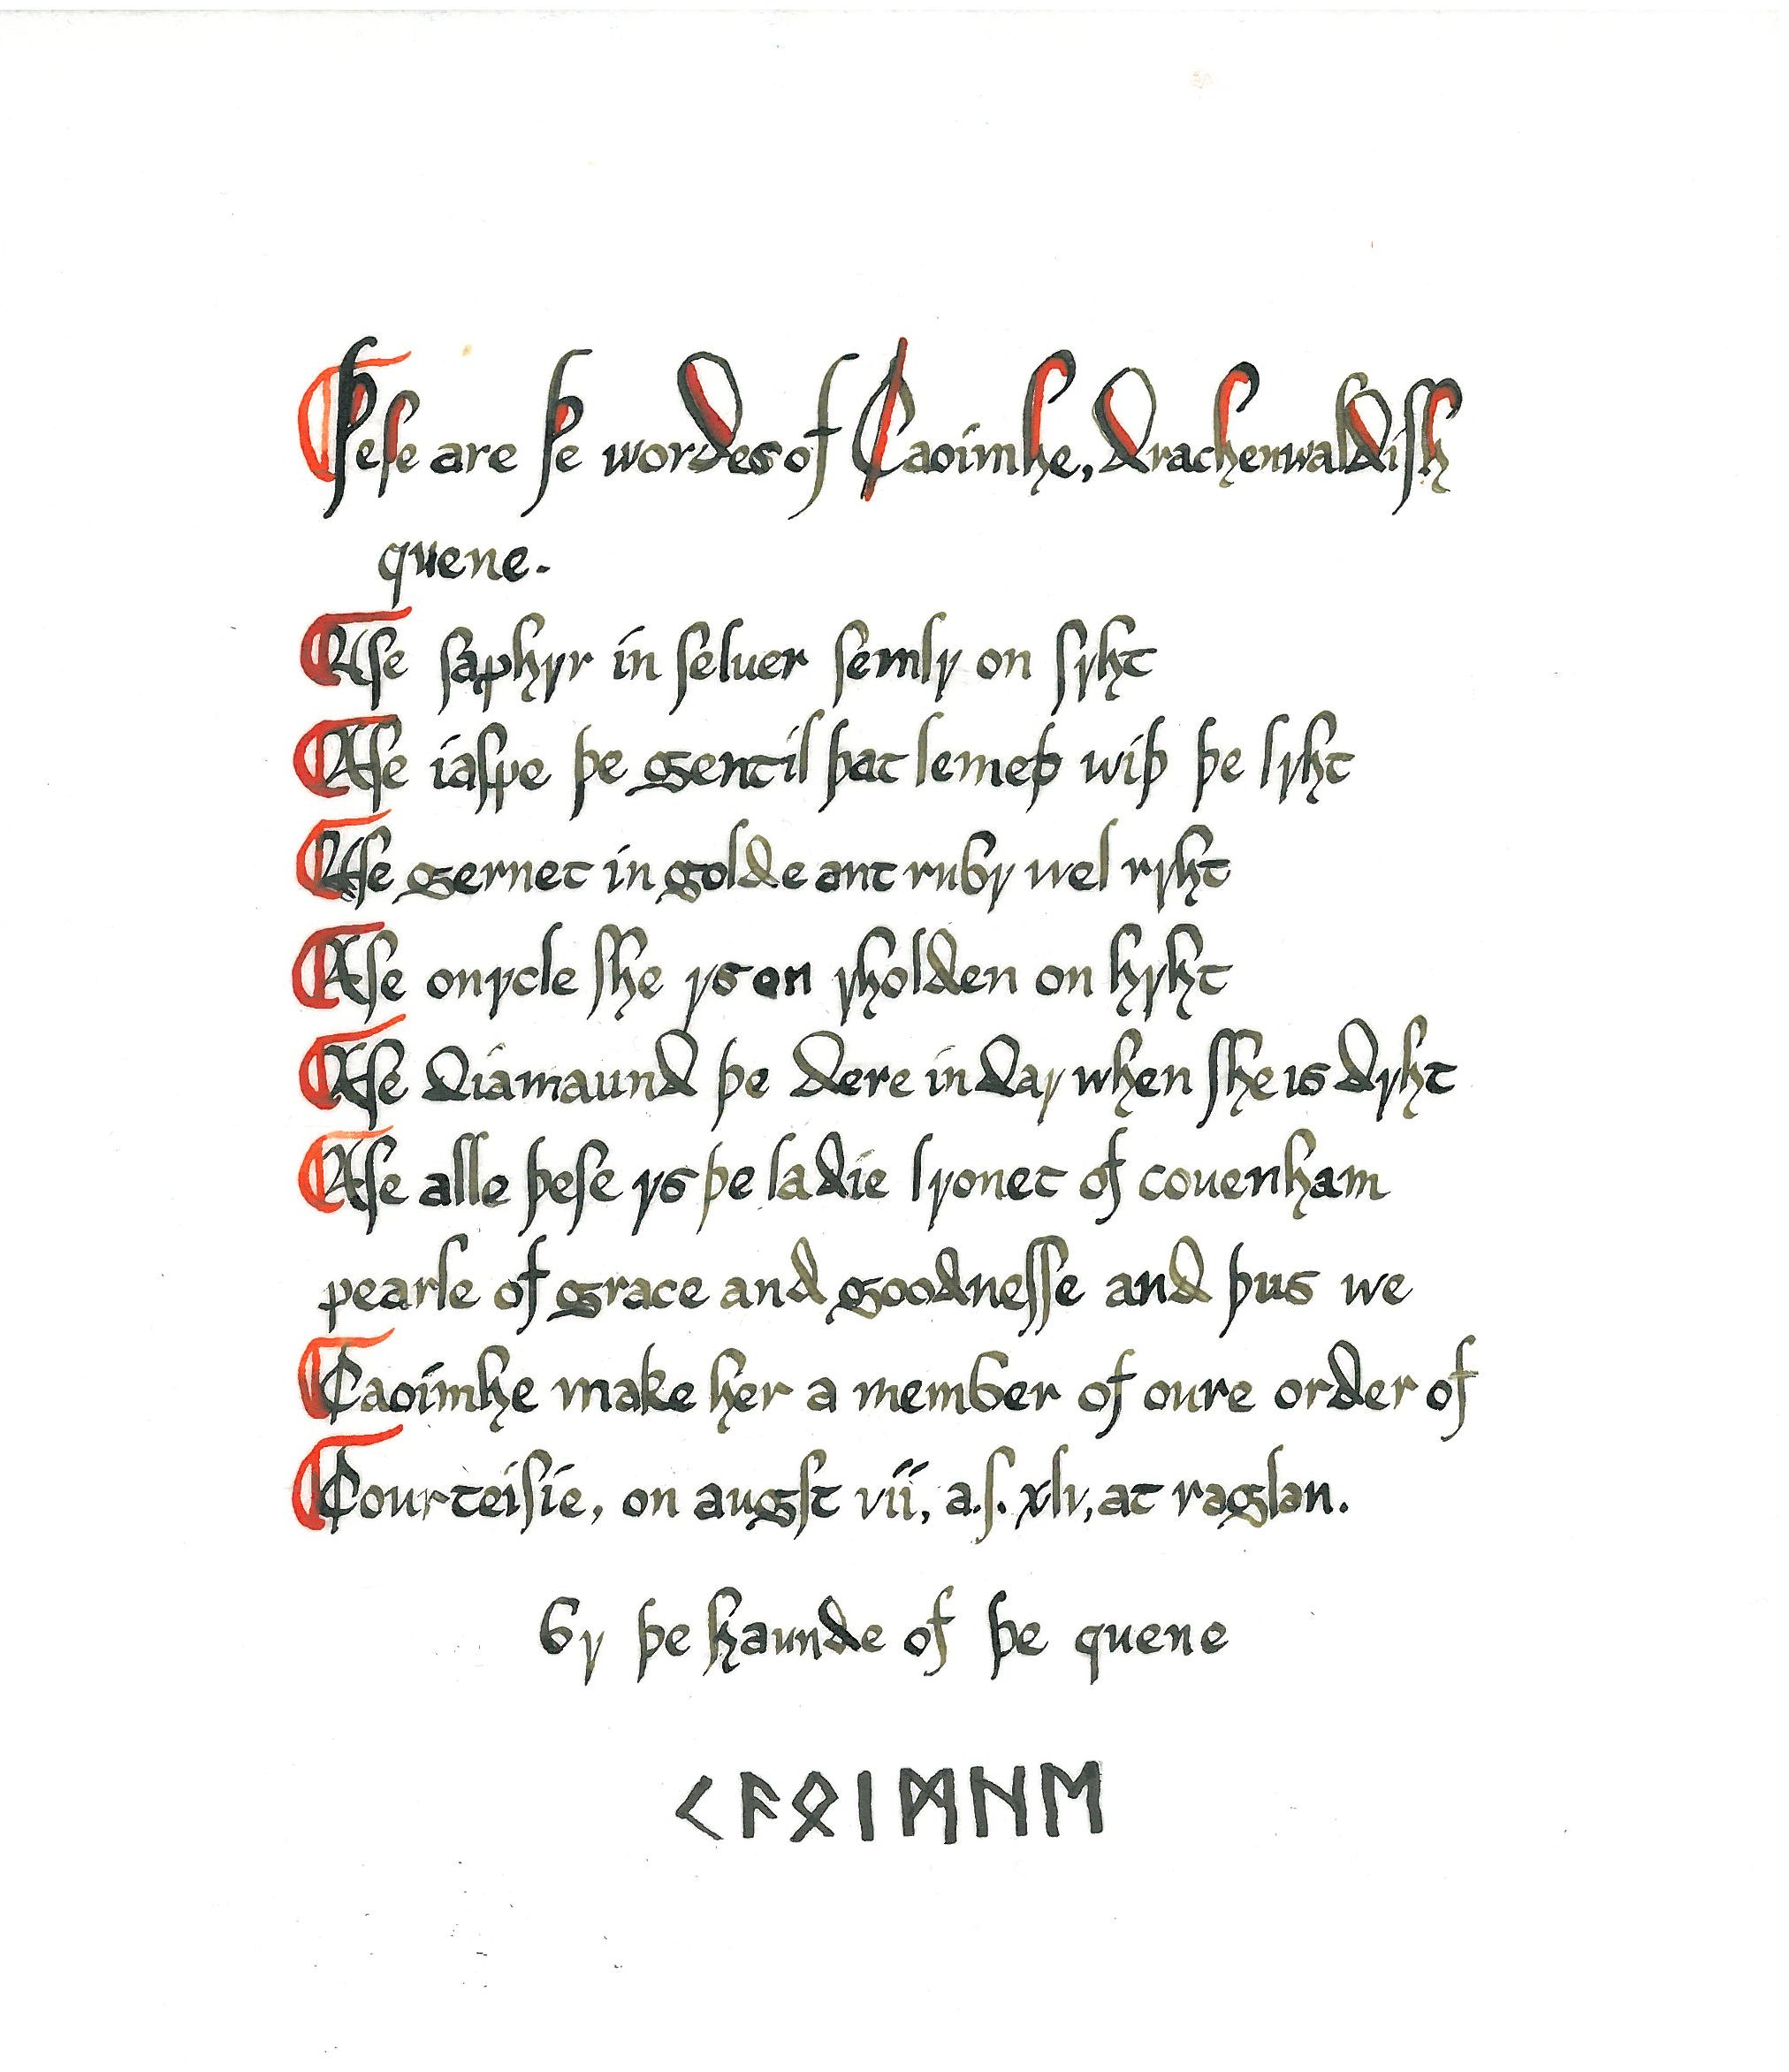 Þeſe are þe wordes of Caoimhe, drachenwaldiſh
quene.
Aſe ſaphyr in ſeluer ſemly on ſyht
Aſe iaſpe þe gentil þat lemeþ wiþ þe lyht
Aſe gernet in golde ant ruby wel ryht
Aſe onycle ſhe ys on yholden on hyht
Aſe diamaund þe dere in day when ſhe is dyht
Aſe alle þeſe ys þe ladie lyonet of couenham
pearle of grace and goodneſſe and þus we
Caoimhe make her a member of oure order of
Courteiſie, on augſt vii, a.ſ. xlv, at raglan.
by þe haunde of þe quene
ᚲᚨᛟᛁᛗᚺᛖ